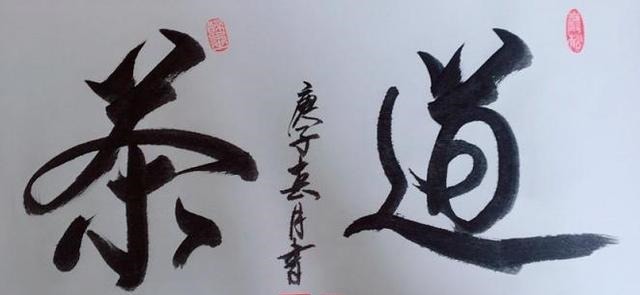 茶道
庚子春月書